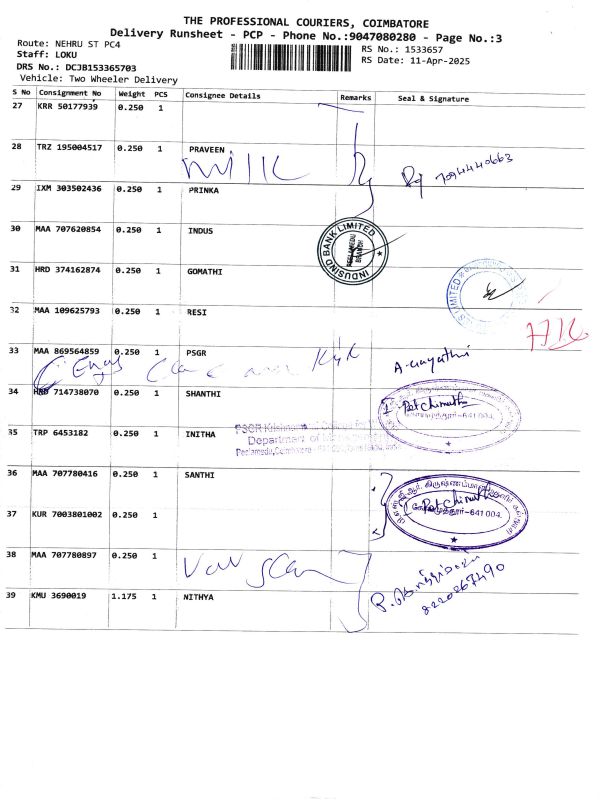 THE PROFESSIONAL COURIERS, COIMBATORE
Delivery Runsheet - PCP - Phone No.:9047080280 - Page No.:3
Route: NEHRU ST PC4
RS No.: 1533657
Staff: LOKU
RS Date: 11-Apr-2025
DRS No.: DCJB153365703
Vehicle: Two Wheeler Delivery
S No Consignment No Weight PCS Consignee Details Remarks Seal & Signature
27 KRR 50177939 0.250 1
28 TRZ 195004517 0.250 1 PRAVEEN
29 IXM 303502436 0.250 1 PRINKA
30 MAA 707620854 0.250 1 INDUS
INDUSIND BANK LIMITED
PEELAMEDU BRANCH
31 HRD 374162874 0.250 1 GOMATHI
LIMITED
32 MAA 109625793 0.250 1 RESI
33 MAA 869564859 0.250 1 PSGR
A. Gayathri
34 HRD 714738070 0.250 1 SHANTHI
35 TRP 6453182 0.250 1 INITHA
PSGR Krishnammal College For
Department of
Peelamedu, Coimbatore
36 MAA 707780416 0.250 1 SANTHI
37 KUR 7003801002 0.250 1
கோயமுத்தூர்-641 004.
38 MAA 707780897 0.250 1
39 KMU 3690019 1.175 1 NITHYA
8220267490